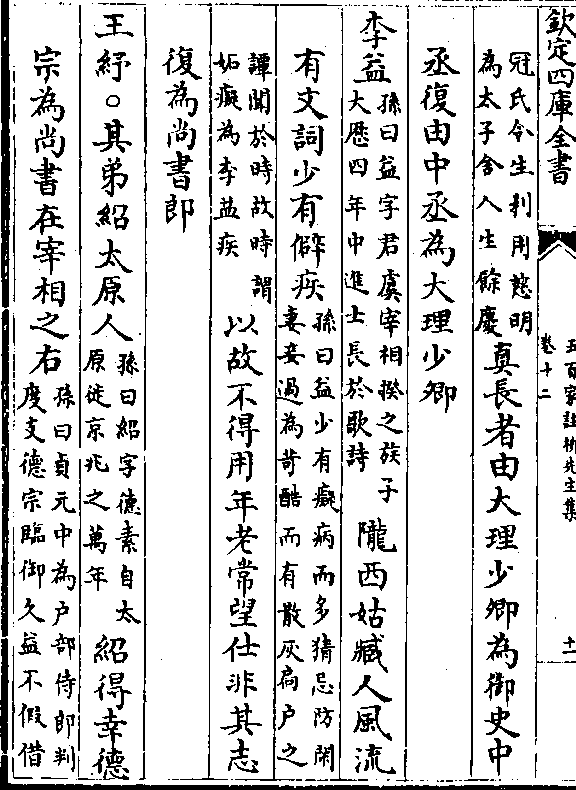 欽定四庫全書
五百家註柳先生集
卷十二
十一
冠氏令生利用慈明
為太子舍人生餘慶
真長者由大理少卿為御史中
丞復由中丞為大理少卿
李益
孫曰益字君虞宰相揆之族子
大厯四年中進士長於歌詩
隴西姑臧人風流
有文詞少有僻疾
孫曰益少有癡病而多猜忌防閑
妻妾過為苛酷而有散灰扃户之
譚聞於時故時謂
妬癡為李益疾
以故不得用年老常望仕非其志
復為尚書郎
王紓○其弟紹太原人
孫曰紹字德素自太
原徙京兆之萬年
紹得幸德
宗為尚書在宰相之右
孫曰貞元中為户部侍郎判
度支德宗臨御久益不假借